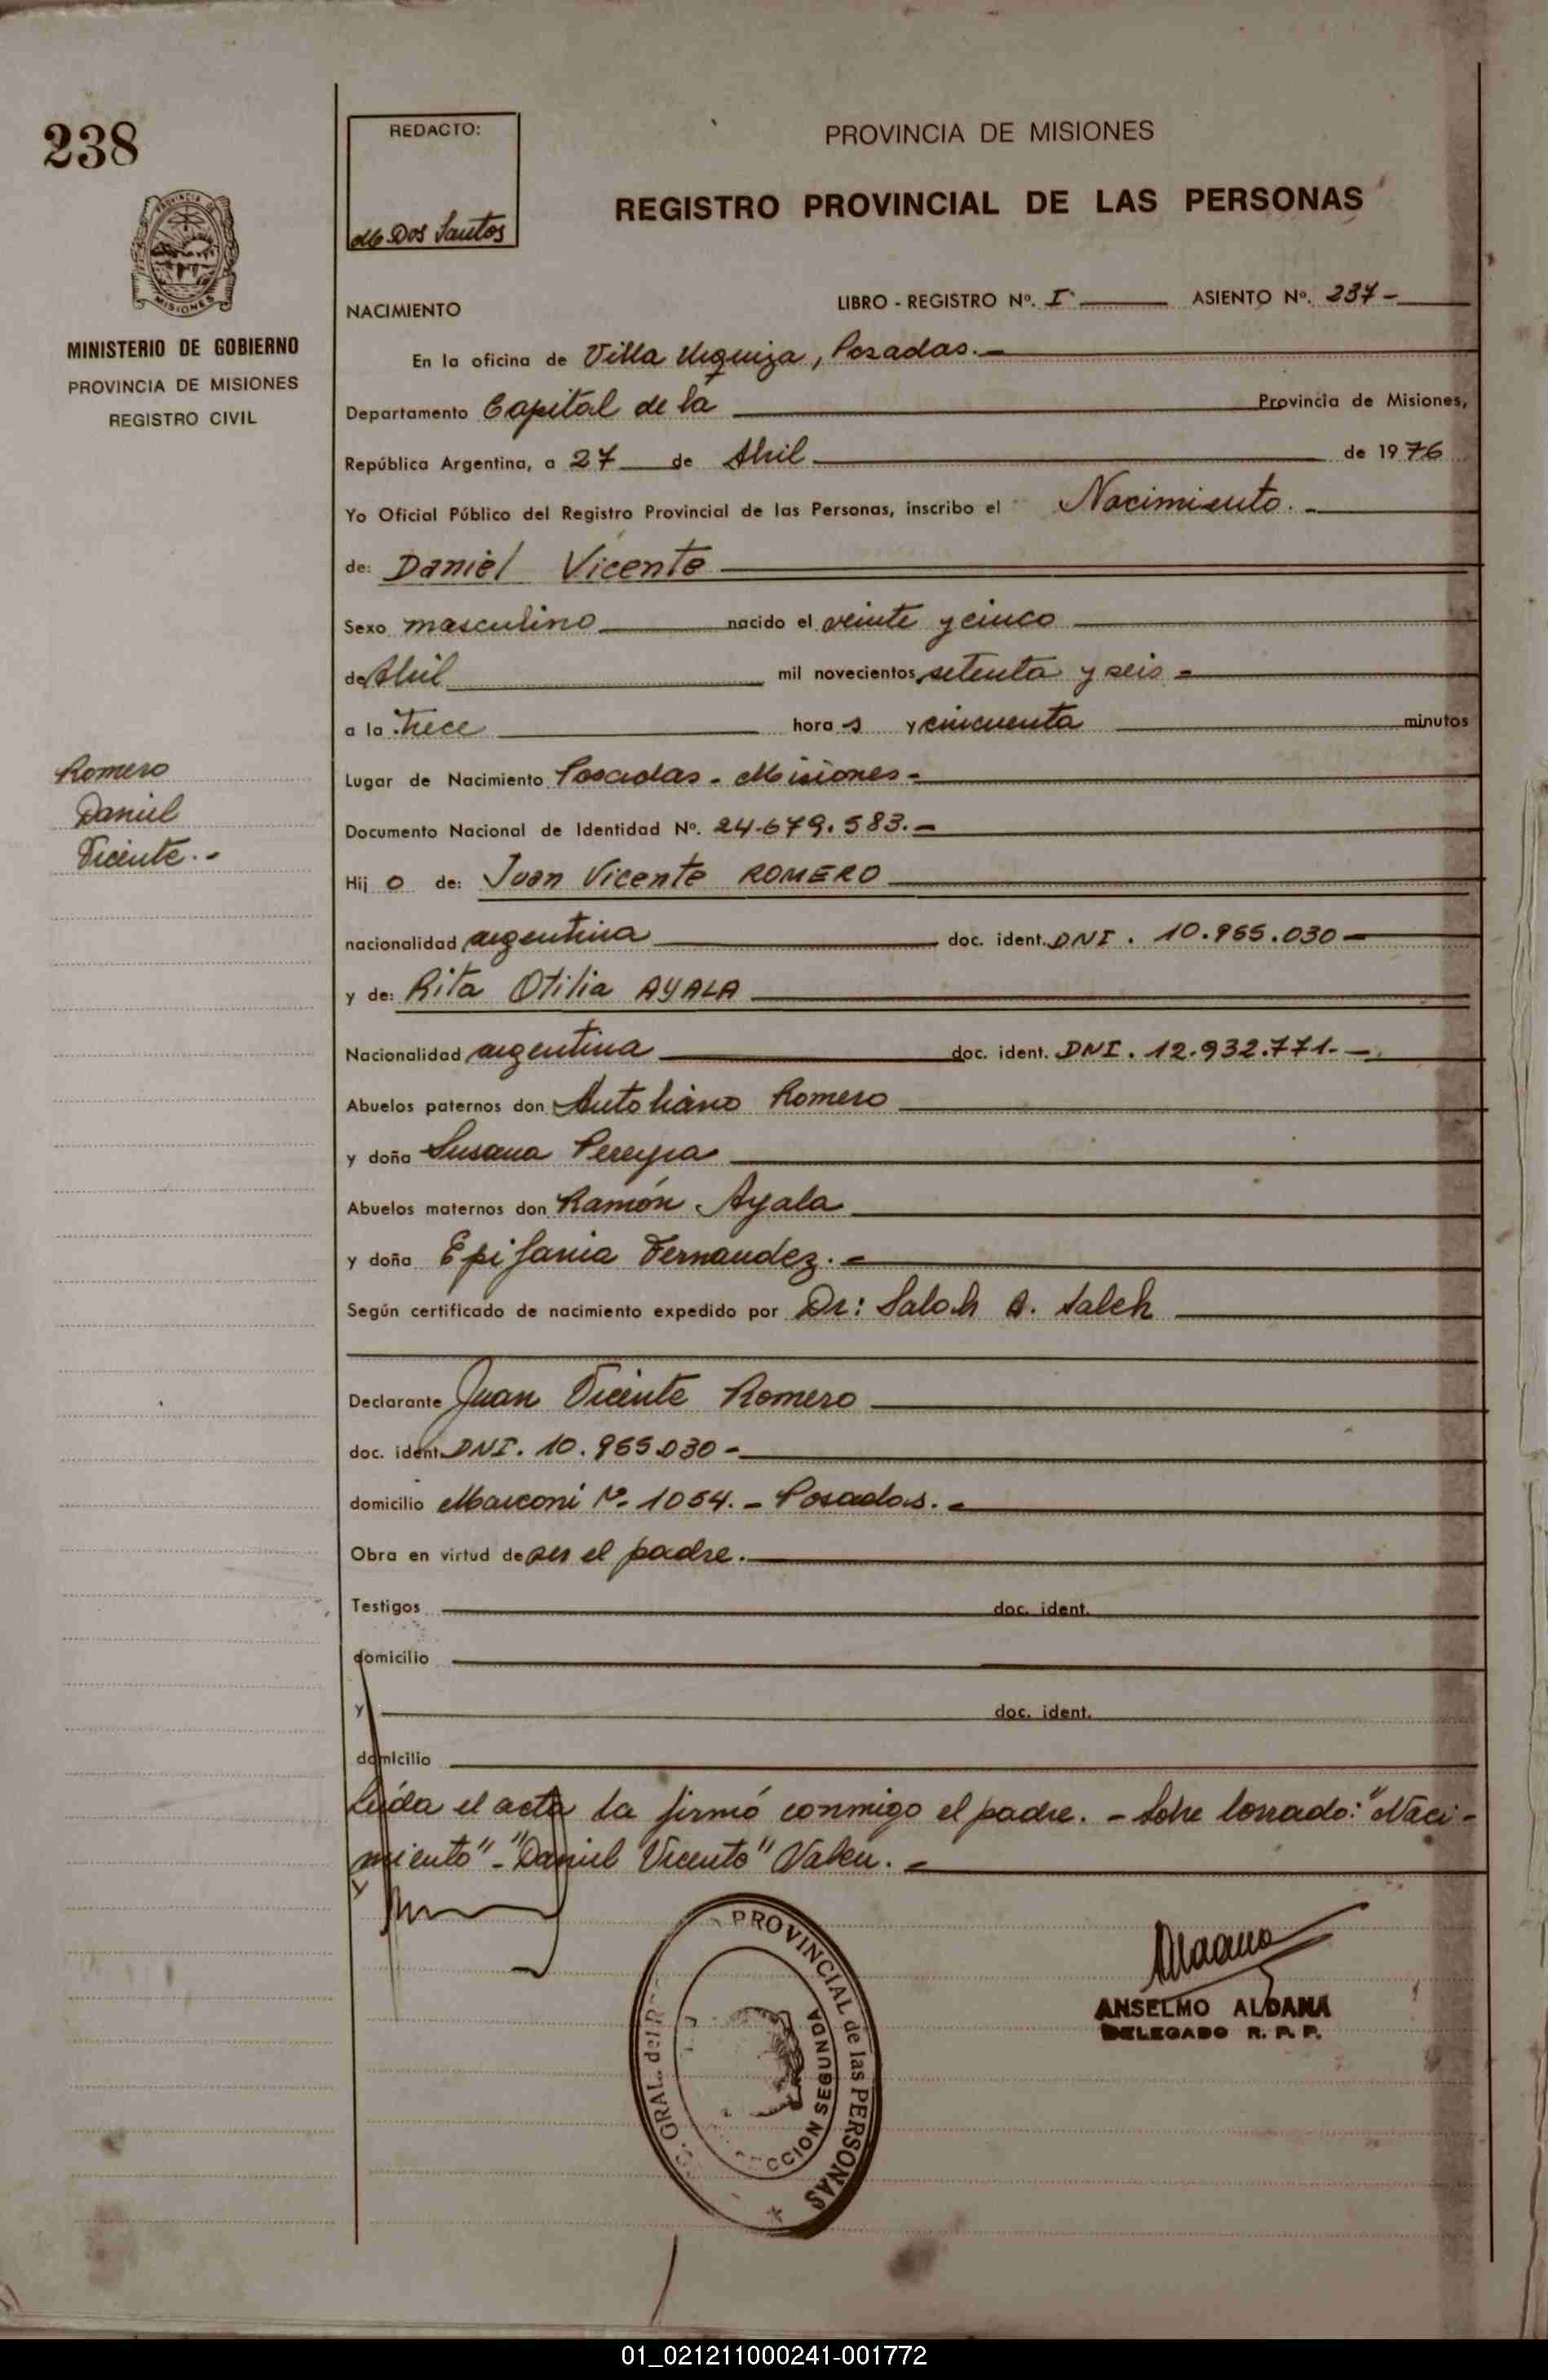 238
REDACTO:
M Dos Santos
PROVINCIA DE MISIONES
REGISTRO PROVINCIAL DE LAS PERSONAS
PROVINCIA DE
MISIONES
MINISTERIO DE GOBIERNO
PROVINCIA DE MISIONES
REGISTRO CIVIL
NACIMIENTO
LIBRO - REGISTRO Nº. I ASIENTO Nº. 237 -
En la oficina de Villa Urquiza, Posadas. -
Departamento Capital de la Provincia de Misiones,
República Argentina, a 27 de Abril de 1976
Yo Oficial Público del Registro Provincial de las Personas, inscribo el Nacimiento. -
de: Daniel Vicente
Sexo masculino nacido el veinte y cinco
de Abril mil novecientos setenta y seis -
a la trece hora s y cincuenta minutos
Romero
Daniel
Vicente. -
Lugar de Nacimiento Posadas - Misiones -
Documento Nacional de Identidad Nº. 24.679.583. -
Hij o de: Juan Vicente ROMERO
nacionalidad argentina doc. ident. DNI. 10.965.030 -
y de: Rita Otilia AYALA
Nacionalidad argentina doc. ident. DNI. 12.932.771. -
Abuelos paternos don Romero
y doña Susana Pereyra
Abuelos maternos don Ramón Ayala
y doña Epifania Fernandez. -
Según certificado de nacimiento expedido por Dr: Salah A. Saleh
Declarante Juan Vicente Romero
doc. ident. DNI. 10.965.030 -
domicilio Marconi Nº 1054. - Posadas. -
Obra en virtud de ser el padre.
Testigos doc. ident.
domicilio
y doc. ident.
domicilio
Leída el acta la firmó conmigo el padre. - Sobre borrado: "Naci-
miento" - "Daniel Vicente" Valen. -
GRAL. del PROVINCIAL de las PERSONAS
CCION SEGUNDA
ANSELMO ALDANA
DELEGADO R. P. P.
01_021211000241-001772